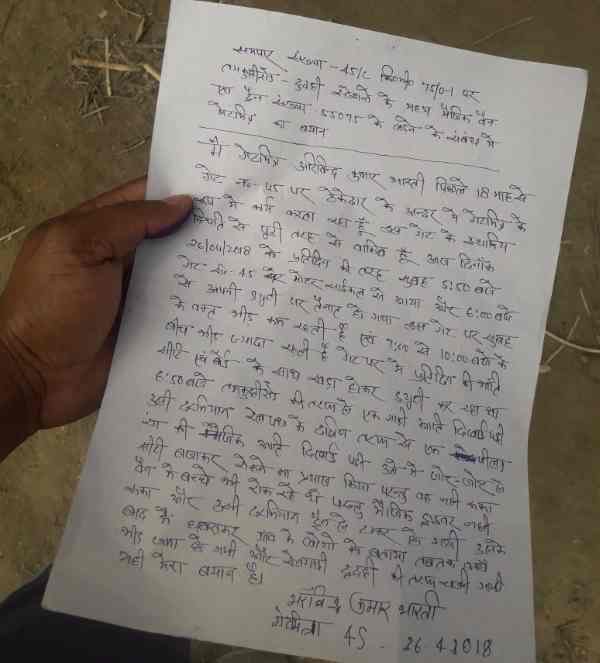 समपार संख्या - 45/C किमी० 75/0-1 पर
तमकुहीरोड - दुदही स्टेशनों के मध्य मैजिक वैन
एवं ट्रेन संख्या 55075 के लड़ने के संबंध में
गेटमित्र का बयान
मैं गेटमित्र अरविन्द कुमार भारती पिछले 18 माह से
गेट नं० 45 पर ठेकेदार के अन्डर में गेटमित्र के
रूप में कार्य करता रहा हूँ इस गेट के
स्थिति से पूरी तरह से वाकिफ हूँ आज दिनांक
26/04/2018 को प्रतिदिन की तरह सुबह 5:50 बजे
गेट सं० 45 पर मोटर साइकिल से आया और 6:00 बजे
से अपनी ड्यूटी पर तैनात हो गया इस गेट पर सुबह
के वक्त भीड़ कम रहती है एवं 9:00 से 10:00 बजे के
बीच भीड़ ज्यादा रहती है गेट पर मैं प्रतिदिन की भांति
सीटी एवं के साथ खड़ा होकर ड्यूटी कर रहा था
6:50 बजे तमकुहीरोड की तरफ से एक गाड़ी आते दिखाई पड़ी
उसी दरमियान रेलपथ के दक्षिण तरफ से एक पीला
रंग की मैजिक आते दिखाई पड़ी उसे मैं जोर-जोर से
सीटी बजाकर रोकने का प्रयास किया परन्तु वह नहीं रूका
वैन के बच्चे भी रोक रहे थे परन्तु मैजिक ड्राइवर नहीं
रूका और उसी दरमियान ट्रेन से टक्कर हो गयी उसके
बाद मैं घबराकर गांव के लोगों को बताया तबतक
भीड़ जमा हो गयी और रेलगाड़ी दुदही की तरफ चली गयी
यही मेरा बयान है।
अरविन्द कुमार भारती
गेटमित्र 45 . 26.4.2018